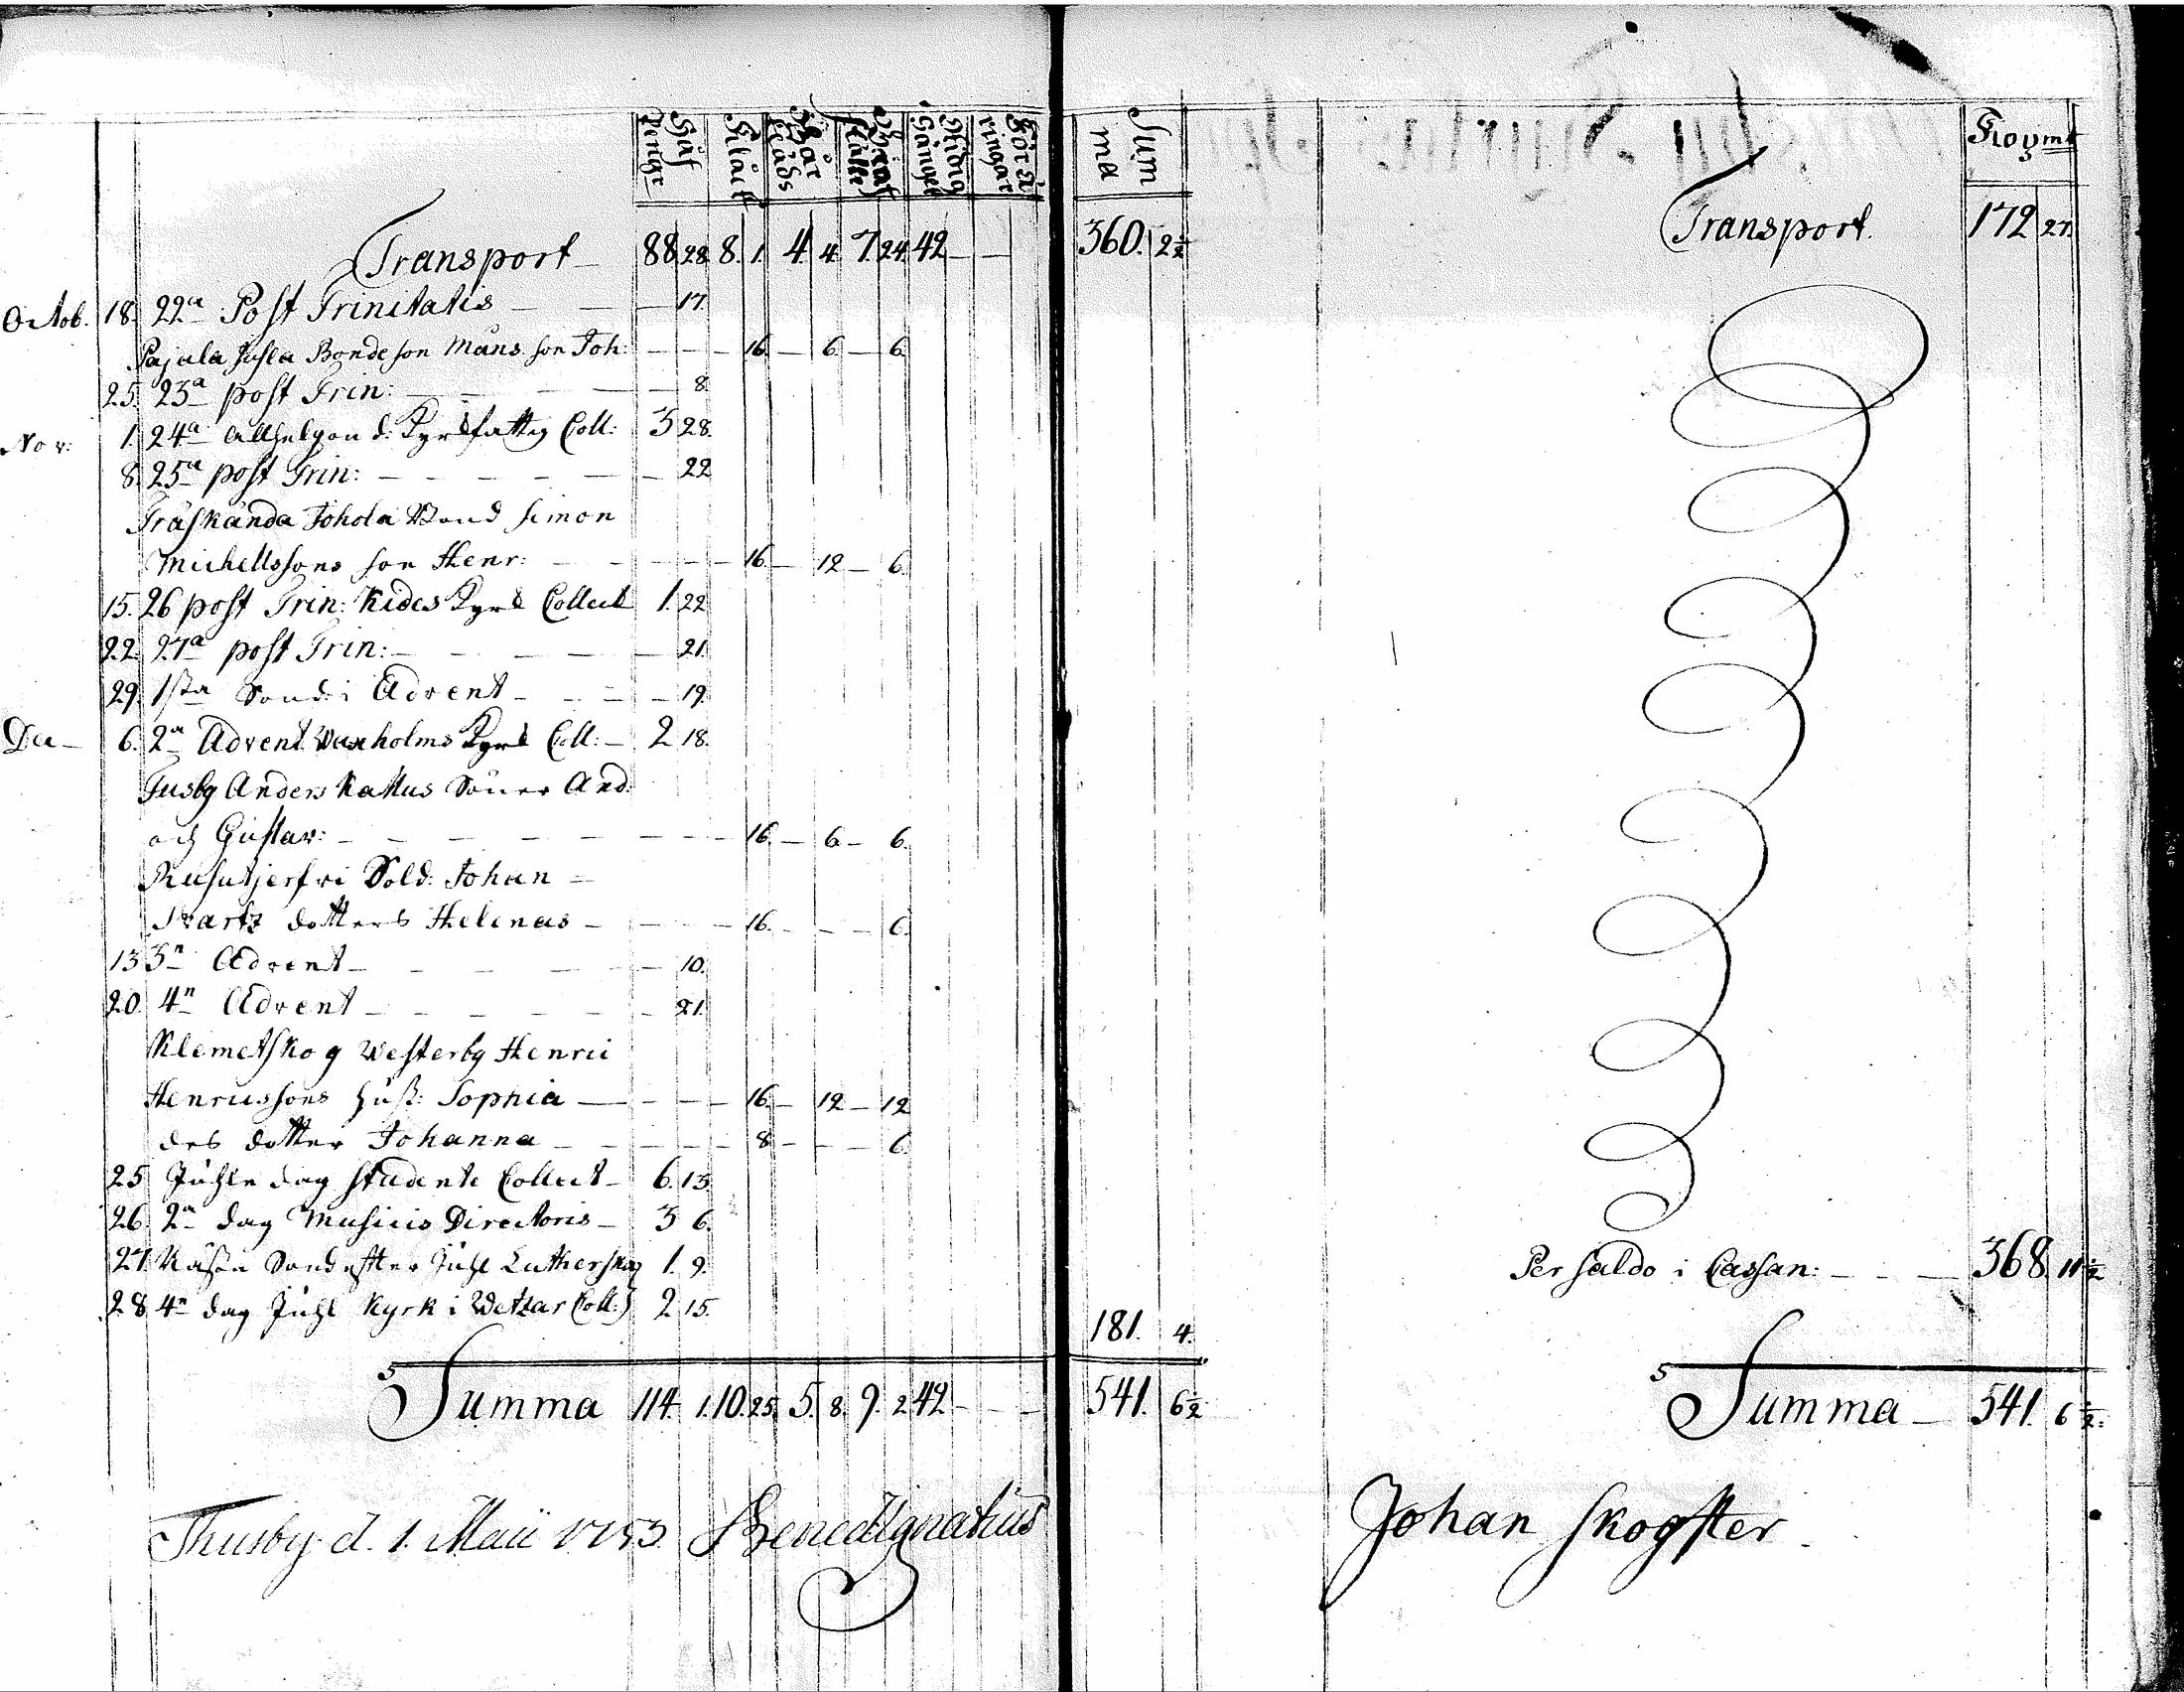 Håf Penge Klåck Bår Kläds Graf ställe Städig Gånget Förä ringar Sum ma
Transport — 88 28. 8. 1. 4. 4. 7. 24. 42 — — 360. 2½
Octob. 18. 22a Post Trinitatis — — — 17.
Pajala Juhla Bondeson Måns. son Joh: — — — 16. — 6. — 6.
25. 23a post Trin: — — — 8.
Nov: 1. 24a Allhelgon d. Kyrkfattig Coll: 3 28.
8. 25a post Trin: — — — — — 22
Träskända Johola Bond Simon
Michellssons son Henr: — — — — 16. — 12 — 6.
15. 26 post Trin: Kides Kyrk Collect 1. 22
22. 27a post Trin: — — — — 21.
29. 1sta Sond: i Advent — — — 19.
Dec — 6. 2a Advent Waxholms Kyrk Coll: — 2 18.
Tusby Anders Kallus Söner And:
och Gustav: — — — — — — — 16. — 6 — 6.
Rusutjerfvi Sold: Johan —
Svartz dotters Helenas — — — — 16. — — — 6.
13 3n Advent — — — — 10.
20. 4n Advent — — — — — 21.
Klemetskog Westerby Henric
Henricssons Hust: Sophia — — — — 16. — 12 — 12
des dotter Johanna — — — — — 8 — — — 6.
25 Juhle dag studente Collect — 6. 13
26. 2n dag Musicis Directoris — 3 6.
27. Näste Sond efter Juhl Lutherska 1. 9.
28. 4n dag Juhl Kyrk i Wetzlar Coll:) 2 15.
181. 4.
Summa 114. 1. 10. 25. 5. 8. 9. 2 42 — — — 541. 6½
Thusby d. 1. Maii 1753. Bened Ignatius
Koymt
Transport. 172 27.
Per Saldo i Cassan: — — — 368. 11½
Summa — 541. 6½.
Johan Skogster